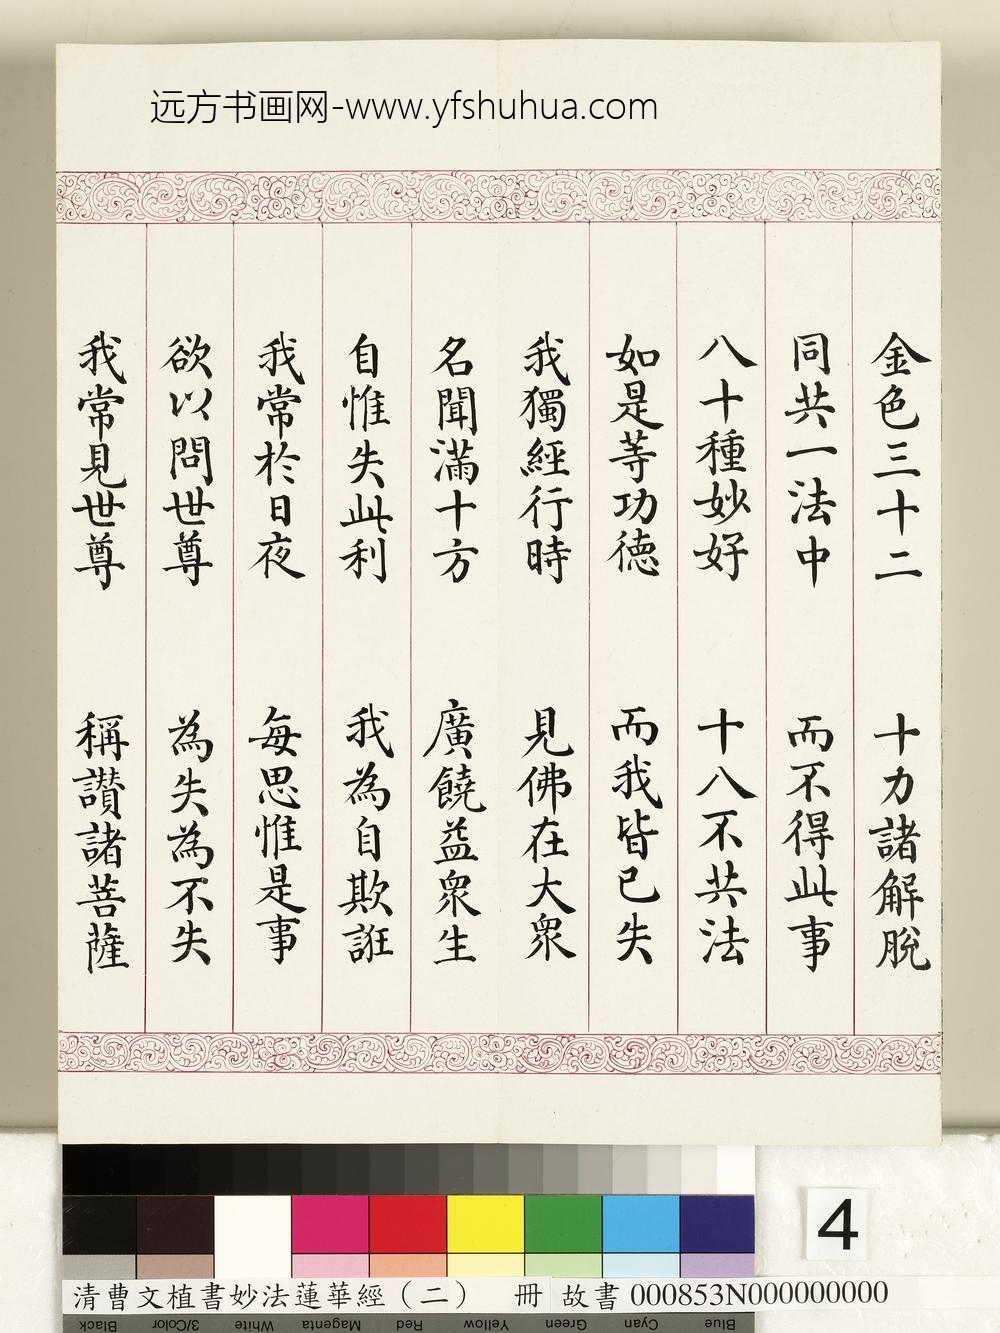 远方书画网-www.yfshuhua.com
金色三十二 十力諸解脫
同共一法中 而不得此事
八十種妙好 十八不共法
如是等功德 而我皆已失
我獨經行時 見佛在大眾
名聞滿十方 廣饒益眾生
自惟失此利 我為自欺誑
我常於日夜 每思惟是事
欲以問世尊 為失為不失
我常見世尊 稱讚諸菩薩
4
清曹文植書妙法蓮華經（二） 冊 故書000853N000000000
Black 3/Color White Magenta Red Yellow Green Cyan Blue